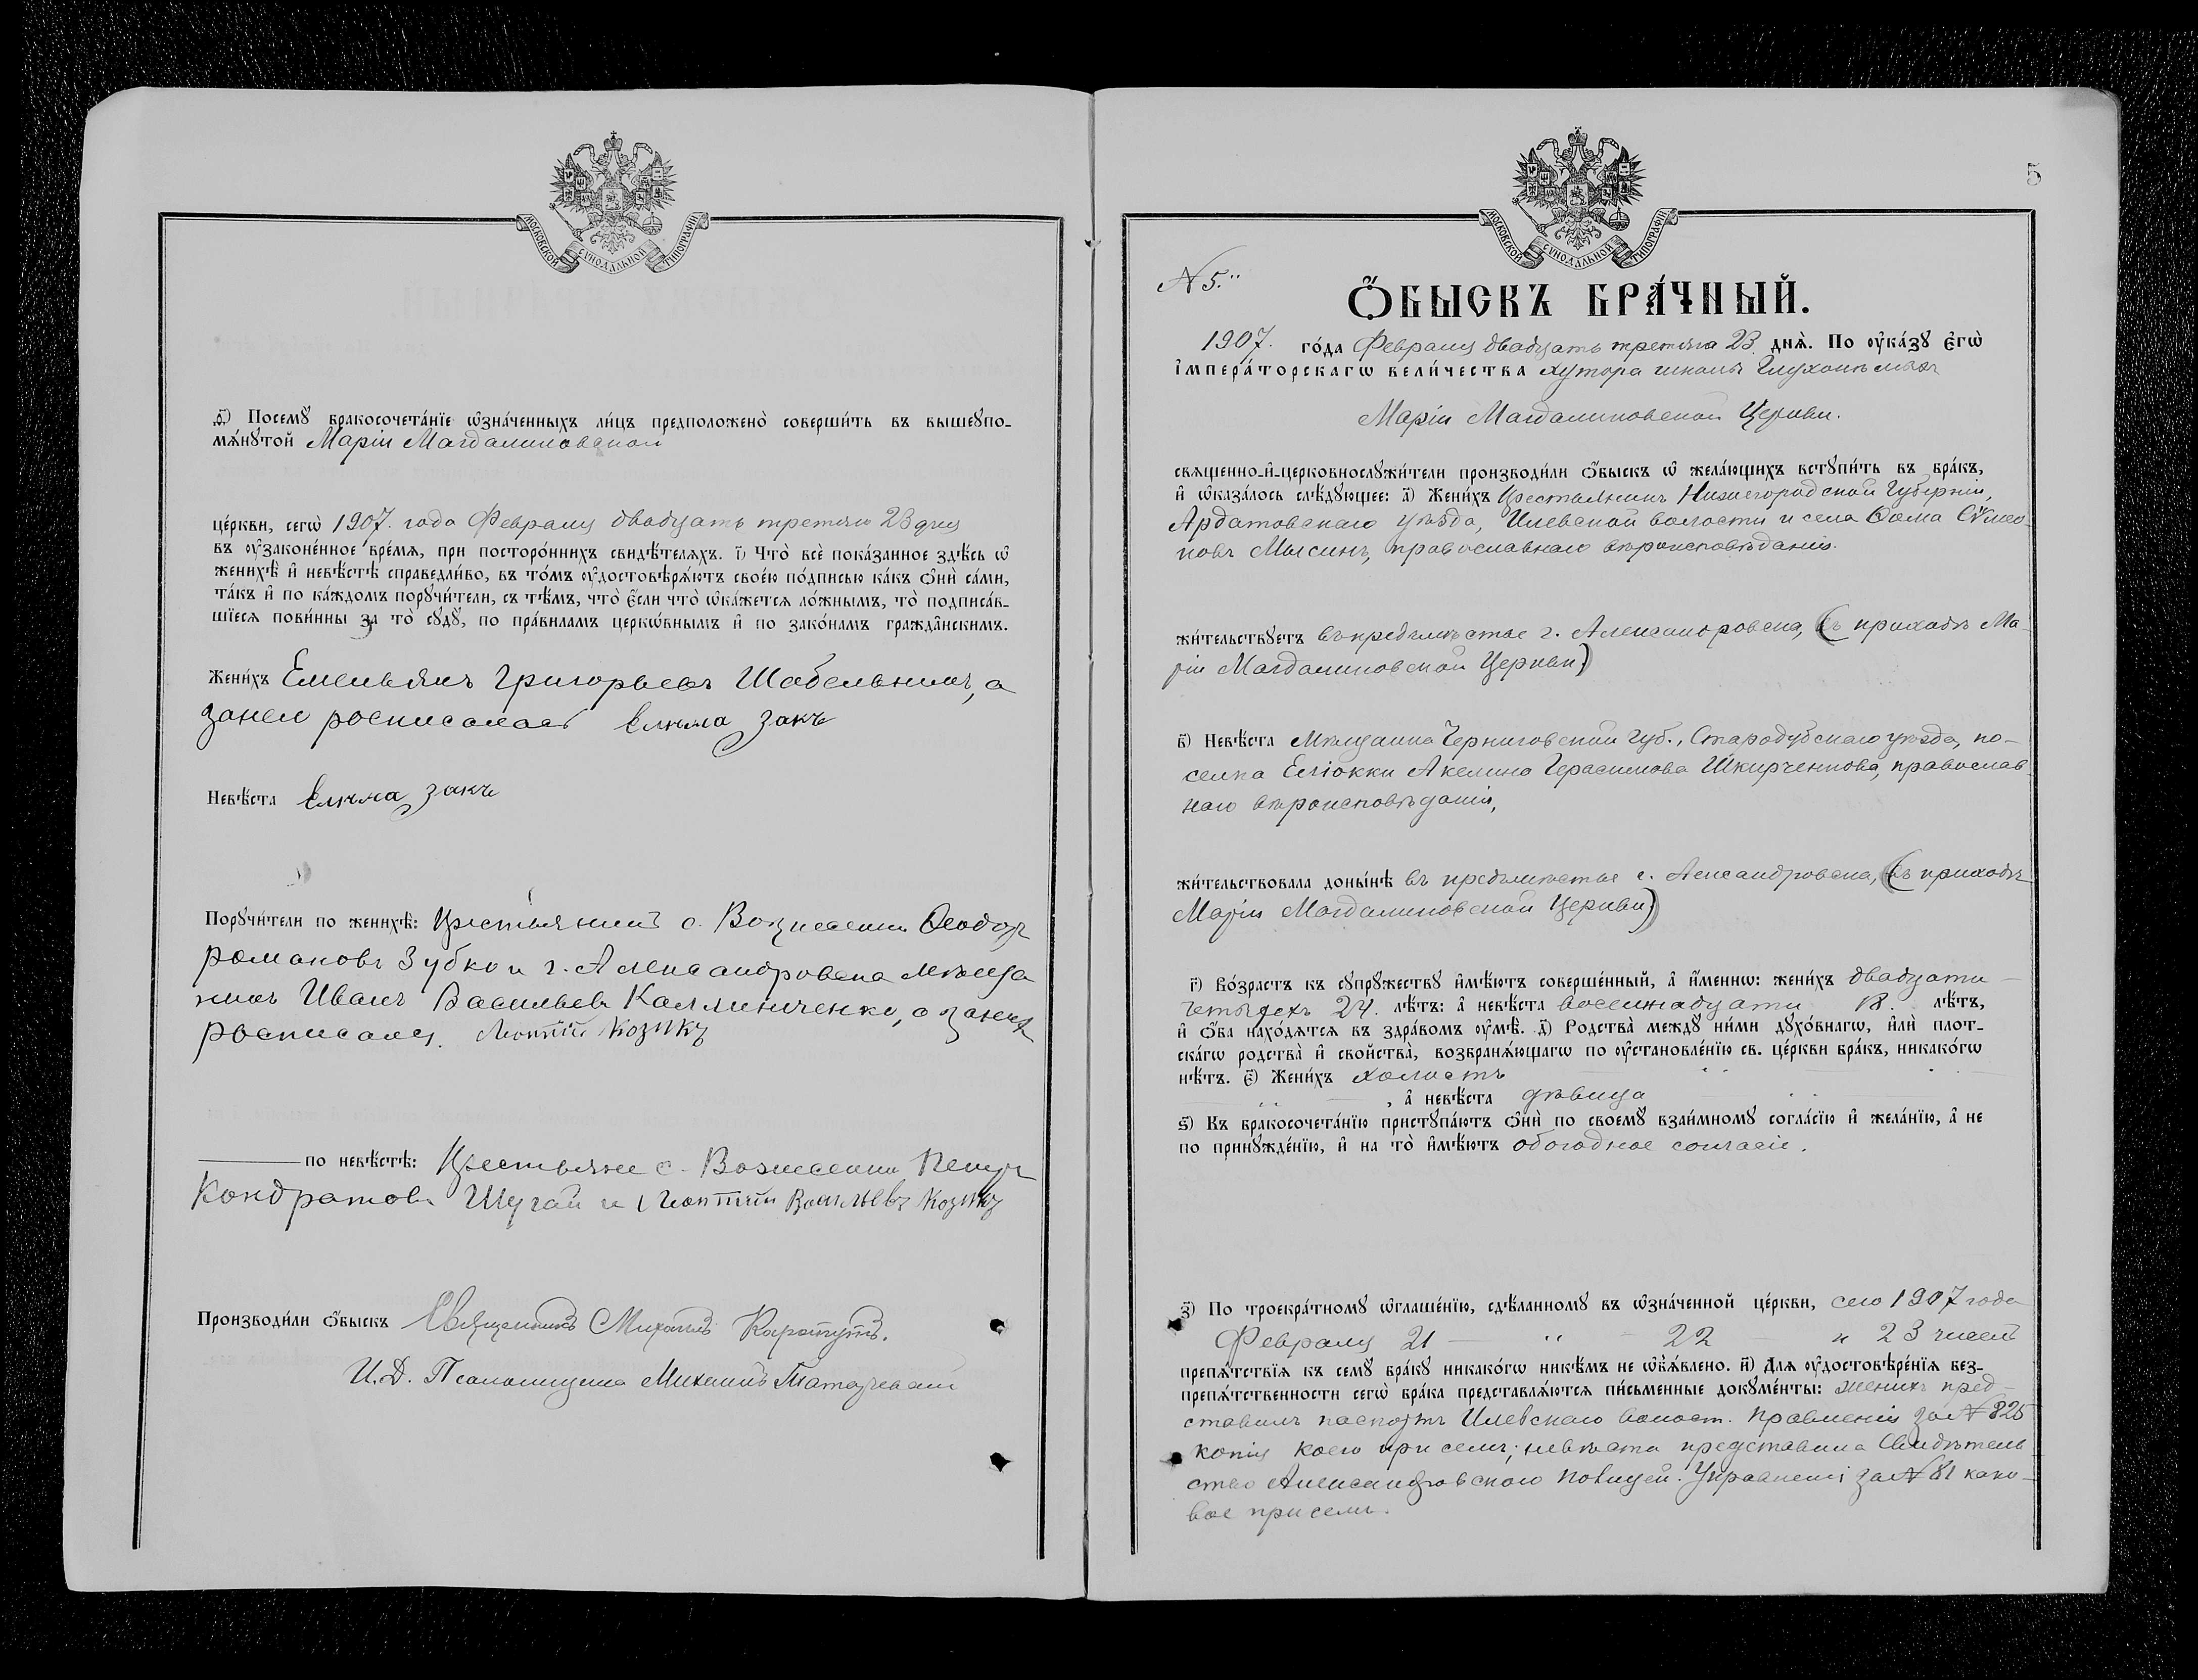 МОСКОВСКОЙ СѴНОДАЛЬНОЙ ТИПОГРАФІИ
д҃) Посемꙋ̀ бракосочета́нїе ѡ҆зна́ченныхъ ли́цъ предположено̀ соверши́ть въ вышеꙋпо-
мѧ́нꙋтой Маріи Магдалиновской
це́ркви, сегѡ̀ 1907. года Февраля двадцать третяго 23 дня
въ ᲂу҆законе́нное вре́мѧ, при посторо́ннихъ свидѣ́телѧхъ. і҃) Что̀ всѐ пока́занное здѣ́сь ѡ҆
женихѣ̀ и҆ невѣ́стѣ справедли́во, въ то́мъ ᲂу҆достовѣрѧ́ютъ свое́ю по́дписью ка́къ ѻ҆нѝ са́ми,
та́къ и҆ по ка́ждомъ порꙋчи́тели, съ тѣ́мъ, что̀ є҆́сли что̀ ѡ҆ка́жетсѧ ло́жнымъ, то̀ подписа́в-
шїесѧ пови́нны за то̀ сꙋдꙋ̀, по пра́виламъ церко́внымъ и҆ по зако́намъ гражда́нскимъ.
Жени́хъ Емельянъ Григорьевъ Шабельникъ, а
занего росписалась закъ
Невѣ́ста закъ
Порꙋчи́тели по женихѣ̀: Крестьянинъ с. Вознесенки Ѳеодоръ
романовъ Зубко и г. Александровска мѣща
нинъ Иванъ Васильевъ Каллиниченко, а занихъ
росписался Леонтій Козику
по невѣ́стѣ: Крестьяне с. Вознесенки Петръ
Кондратовъ Шугай и Леонтій Васильевъ Козику
Производи́ли ѻ҆́быскъ Священникъ Михаилъ
И. Д. Псаломщика Михаилъ
5
МОСКОВСКОЙ СѴНОДАЛЬНОЙ ТИПОГРАФІИ
№ 5.
Ѻ҆́БЫСКЪ БРА́ЧНЫЙ.
1907. го́да Февраля двадцать третяго 23 днѧ̀. По ᲂу҆ка́зꙋ є҆гѡ̀
і҆мпера́торскагѡ вели́чества хутора школы Глухонѣмыхъ
Маріи Магдалиновской Церкви.
священно-и҆-церковнослꙋжи́тели производи́ли ѻ҆́быскъ ѡ҆ жела́ющихъ встꙋпи́ть въ бра́къ,
и҆ ѡ҆каза́лось слѣ́дꙋющее: а҃) Жени́хъ Крестьянинъ Нижегородской Губерніи,
Ардатовскаго уѣзда, Илевской волости и села Ѳома Сѵмео-
новъ Мысинъ, православнаго вѣроисповѣданія.
жи́тельствꙋетъ въ предмѣстье г. Александровска, (въ приходѣ Ма-
ріи Магдалиновской Церкви)
в҃) Невѣ́ста Мѣщанка Черниговской губ., Стародубскаго уѣзда, по-
селка Еліокки Акелина Герасимова Шкирченкова, православ-
наго вѣроисповѣданія,
жи́тельствовала доны́нѣ въ предмѣстье г. Александровска, (въ приходѣ
Маріи Магдалиновской Церкви)
г҃) Во́зрастъ къ сꙋпрꙋ́жествꙋ и҆мѣ́ютъ соверше́нный, а҆ и҆́меннѡ: жени́хъ двадцати
четырехъ 24. лѣ́тъ: а҆ невѣ́ста восемнадцати 18. лѣ́тъ,
и҆ ѻ҆́ба нахо́дятсѧ въ здра́вомъ ᲂу҆мѣ̀. д҃) Родства̀ междꙋ̀ ни́ми дꙋхо́внагѡ, и҆лѝ плот-
ска́гѡ родства̀ и҆ свойства̀, возбранѧ́ющагѡ по ᲂу҆становле́нїю св. це́ркви бра́къ, никако́гѡ
нѣ́тъ. є҃) Жени́хъ холостъ
, а҆ невѣ́ста дѣвица
ѕ҃) Къ бракосочета́нїю пристꙋпа́ютъ ѻ҆нѝ по своемꙋ̀ взаи́мномꙋ согла́сїю и҆ жела́нїю, а҆ не
по принꙋжде́нїю, и҆ на то̀ и҆мѣ́ютъ обоюдное согласіе.
з҃) По троекра́тномꙋ ѡ҆глаше́нїю, сдѣ́ланномꙋ въ ѡ҆зна́ченной це́ркви, сего 1907 года
Февраля 21 — " — 22 — и 23 чиселъ
препѧ́тствїѧ къ семꙋ̀ бра́кꙋ никако́гѡ никѣ́мъ не ѡ҆б̾ѧ́влено. и҃) Длѧ ᲂу҆достовѣре́нїѧ без-
препѧ́тственности сегѡ̀ бра́ка представлѧ́ютсѧ пи́сьменные докꙋме́нты: женихъ пред-
ставилъ паспортъ Илевскаго волост. Правленія за № 825
копія коего при семъ; невѣста представила Свидѣтель-
ство Александровскаго Полицей. Управленія за № 81 како-
вое при семъ.